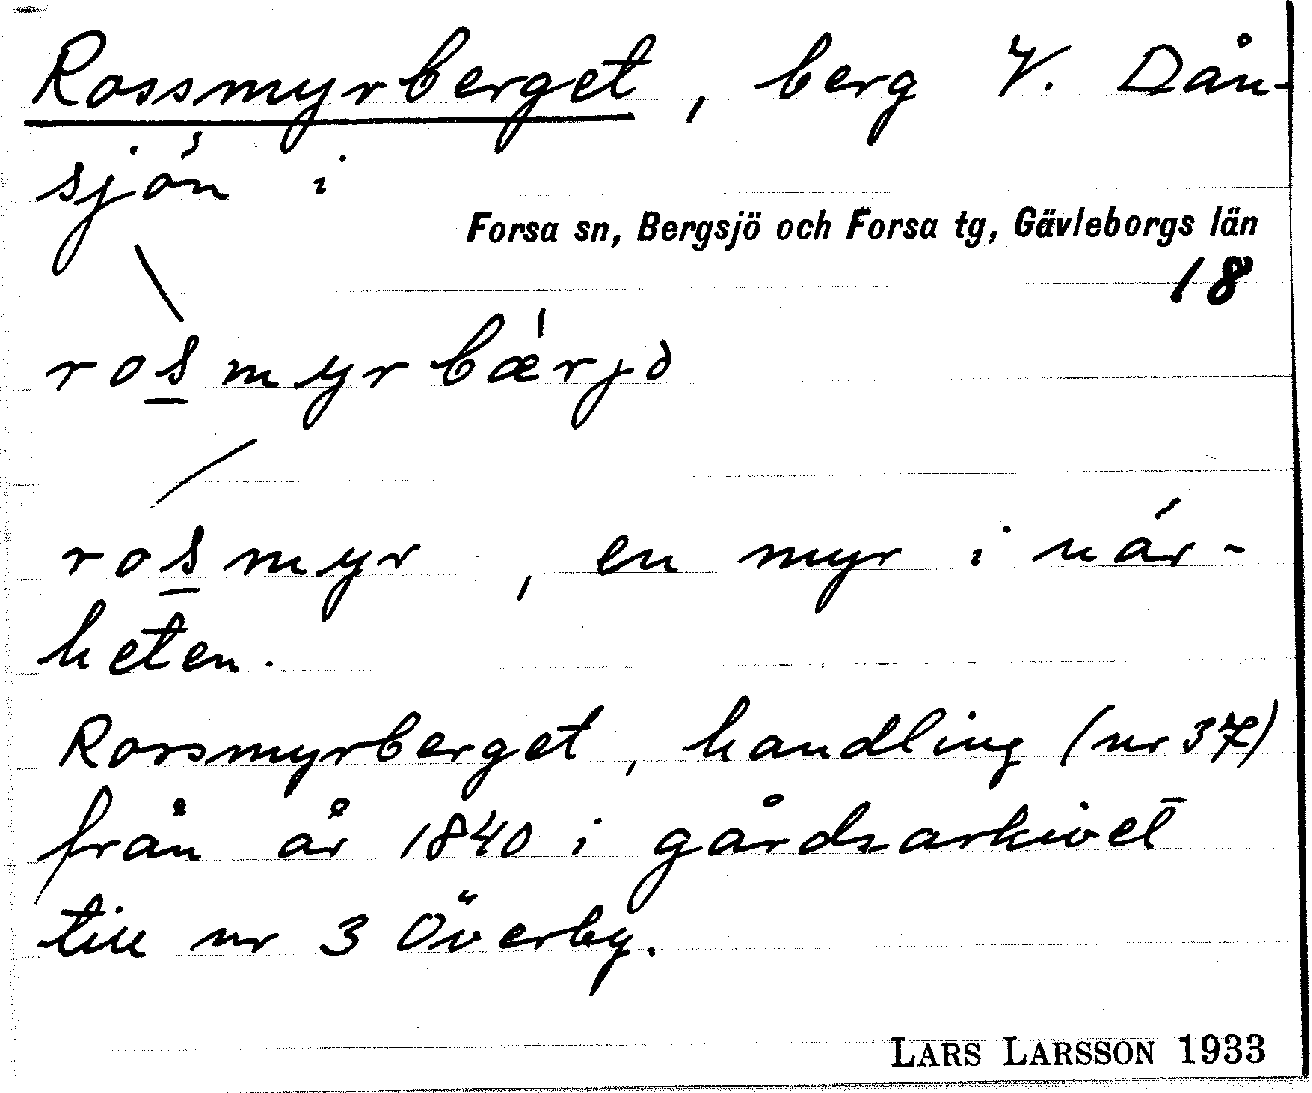 Rossmyrberget, berg V. Dån-
sjön i
Forsa sn, Bergsjö och Forsa tg, Gävleborgs län
18
rosmyrbærjə
rosmyr, en myr i när-
heten.
Rossmyrberget, handling (nr 37)
från år 1840 i gårdsarkivet
till nr 3 Överby.
LARS LARSSON 1933